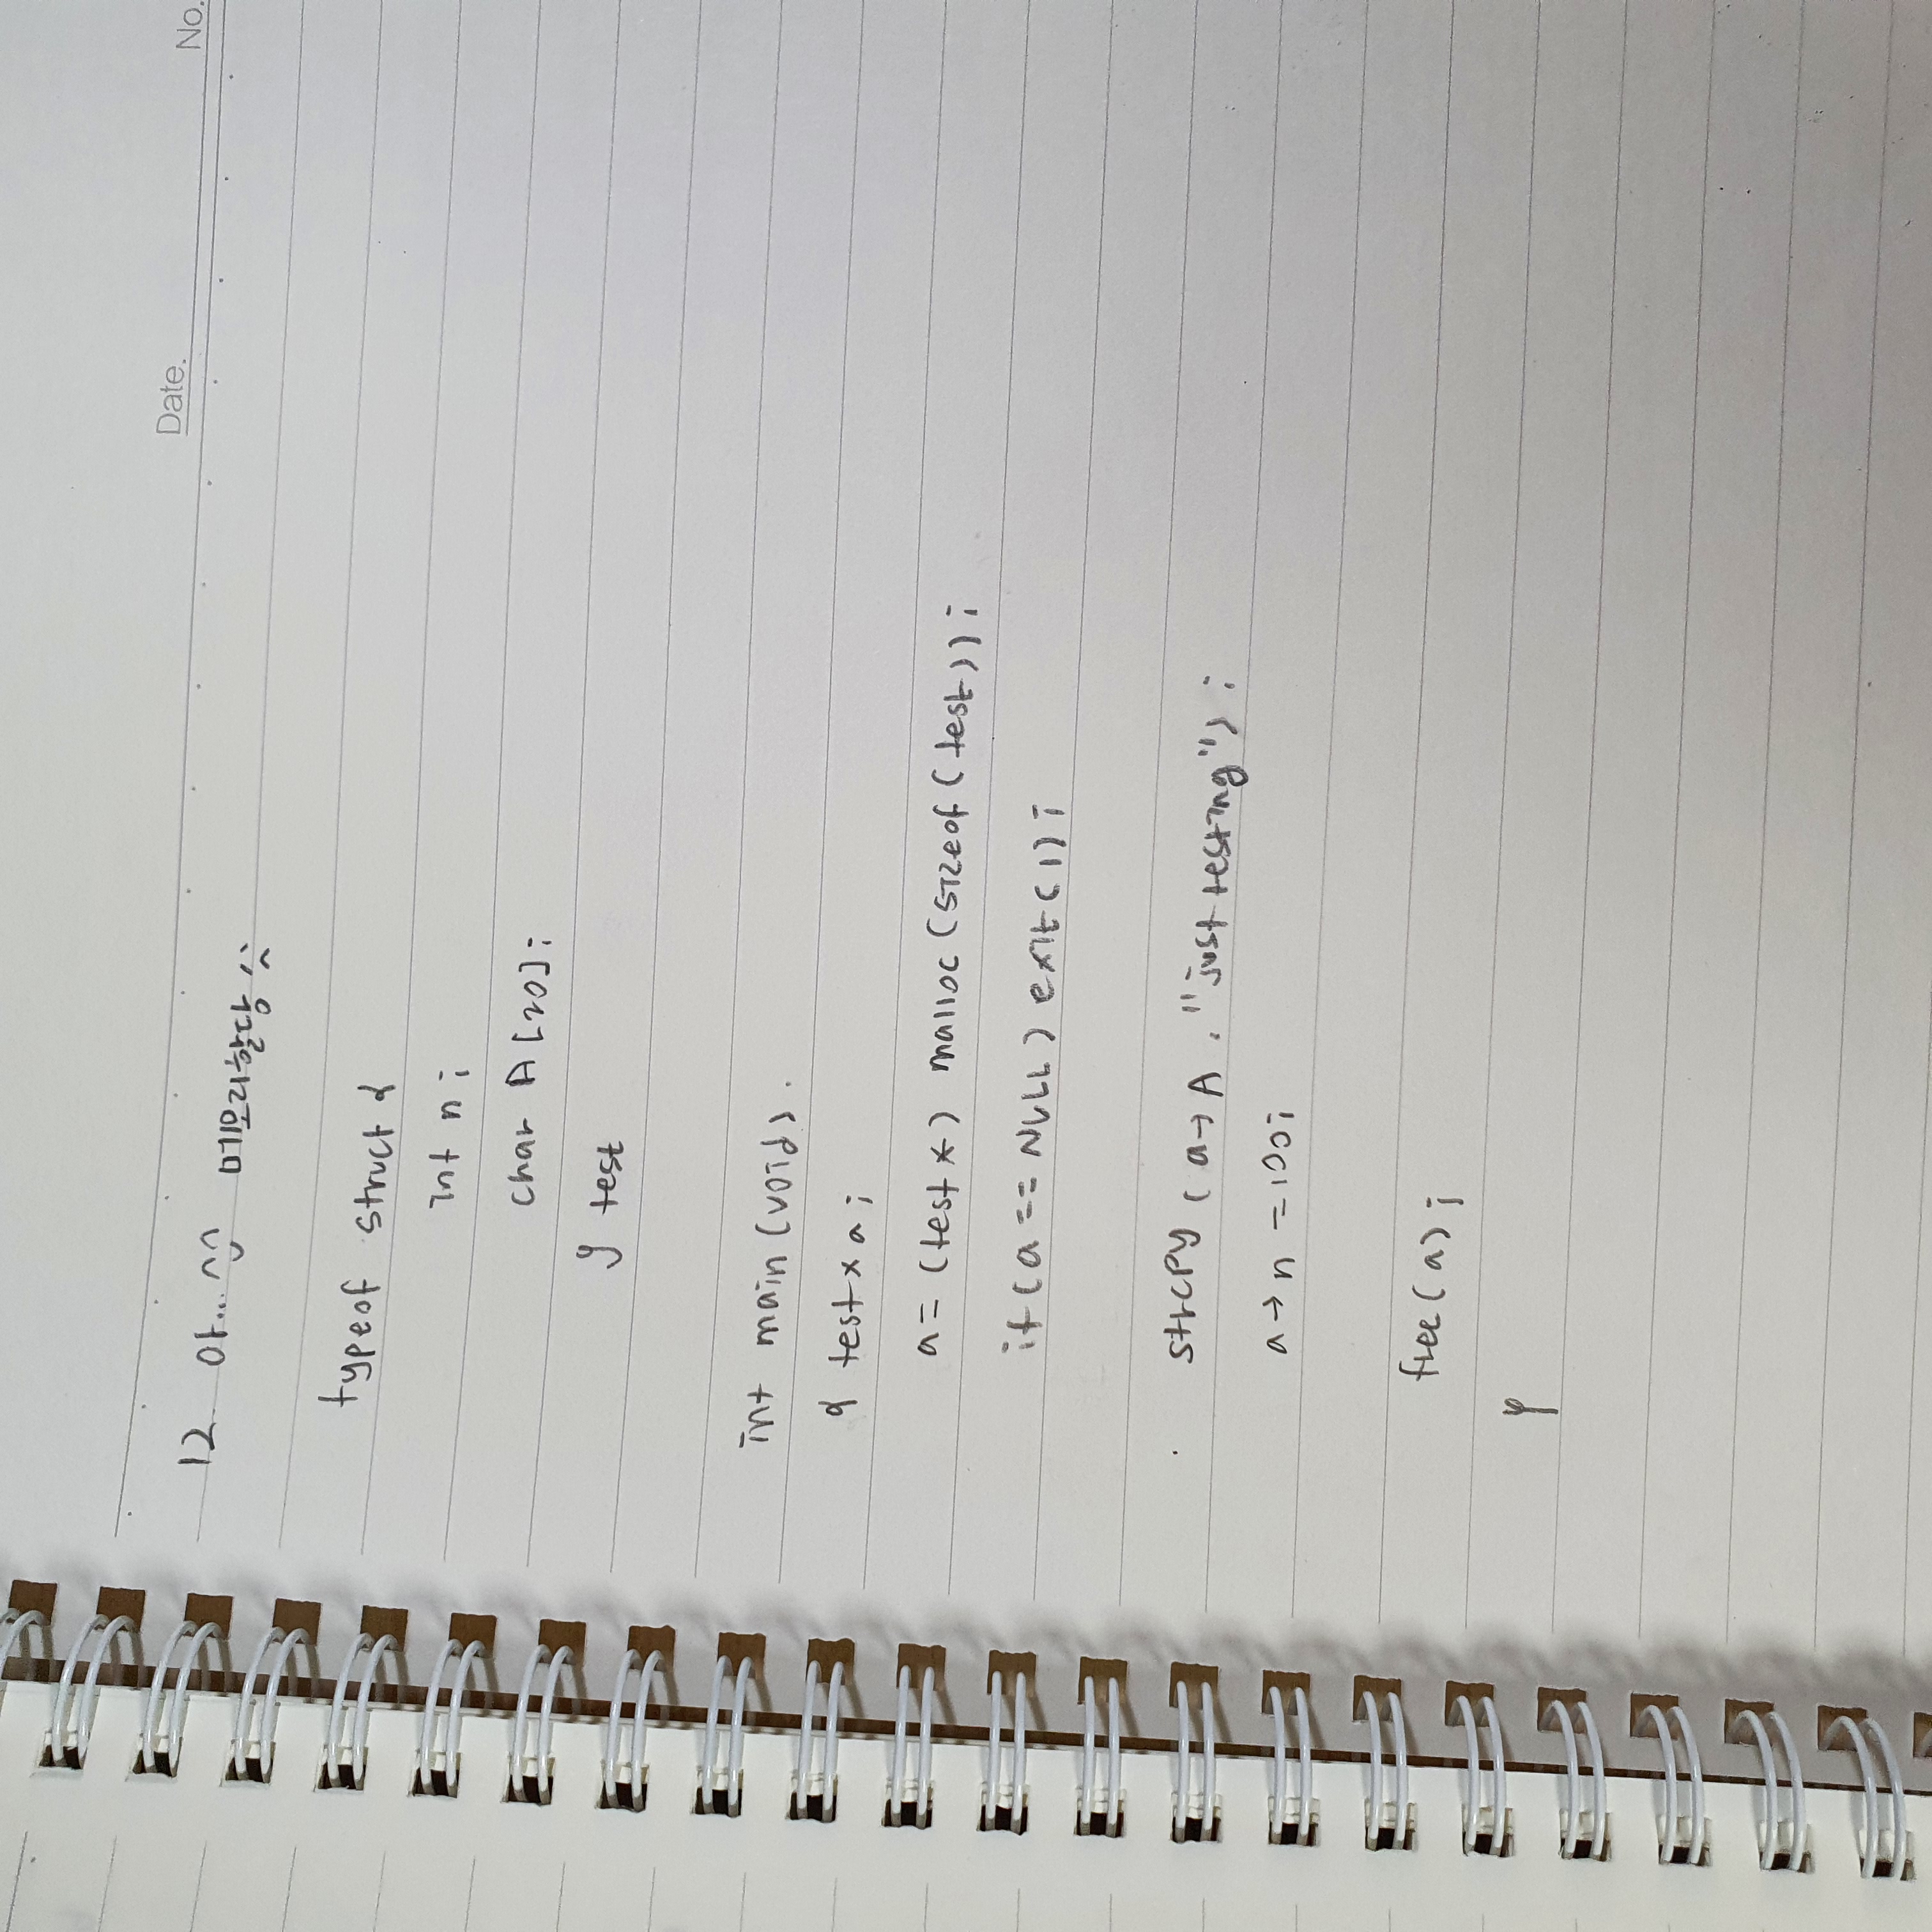 Date.
No.
12. 아... ^^ 메모리할당 ^^
typeof struct {
int n;
char A[20];
} test
int main (void).
{ test* a;
a = (test *) malloc (sizeof (test));
if (a == NULL) exit (1);
strcpy (a→A, "just testing");
a→n = 100;
free (a);
}